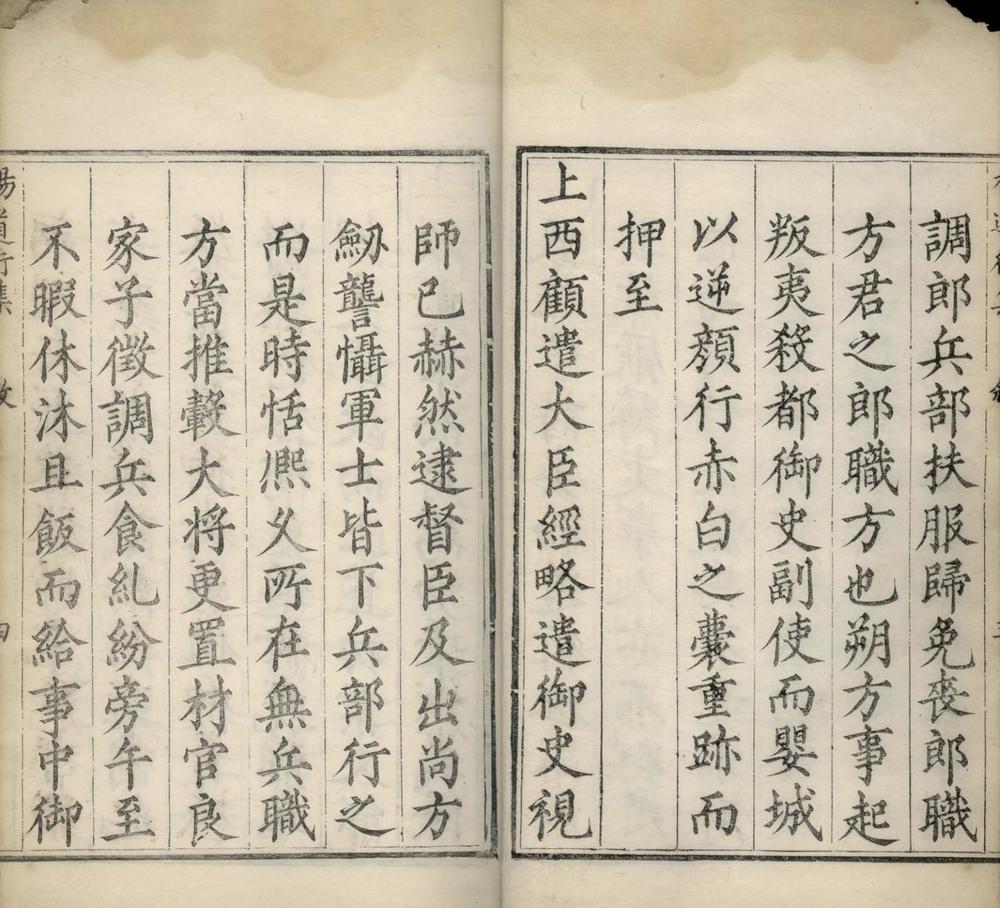 調郎兵部扶服歸免喪郎職
方君之郎職方也朔方事起
叛夷殺都御史副使而嬰城
以逆顏行赤白之囊重跡而
押至
上西顧遣大臣經略遣御史視
師已赫然逮督臣及出尚方
劒讋懾軍士皆下兵部行之
而是時恬熈久所在無兵職
方當推轂大將更置材官良
家子徵調兵食糺紛旁午至
不暇休沐且飯而給事中御